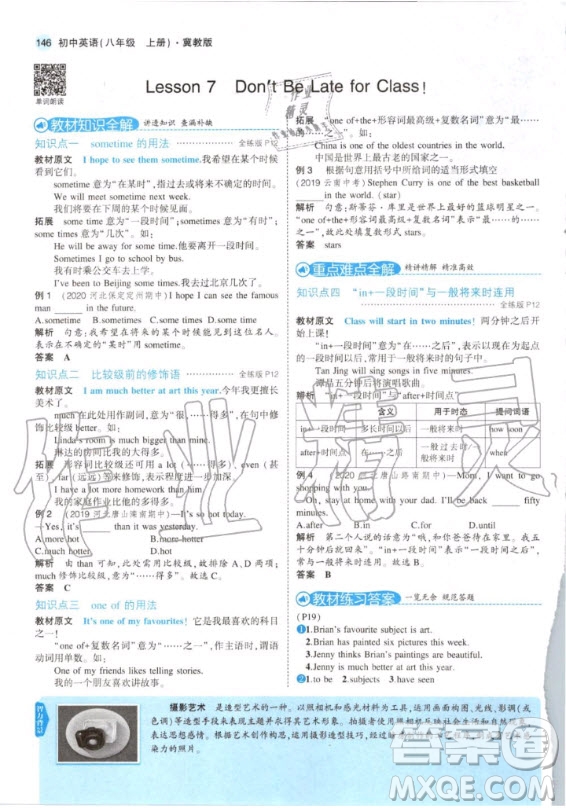 146 初中英语(八年级 上册)·冀教版
单词朗读
Lesson 7 Don't Be Late for Class!
教材知识全解 讲透知识 查漏补缺
知识点一 sometime 的用法 全练版 P12
教材原文 I hope to see them sometime.我希望有个时候
看到它们。
sometime 意为“在某时”,指过去或将来不确定的时间。
We will have the sports meet sometime next week.
我们将要在下周的某个时候见面。
拓展 some time 意为“一段时间”;sometimes 意为“有时”;
some times 意为“几次”。如:
He will be away for some time.他要离开一段时间。
Sometimes I go to school by bus.
我有时乘公交车去上学。
I've been to Beijing some times.我去过北京几次。
例 1 (2020 河北保定定州期中)I hope I can see the famous
man in the future.
A.sometime B.sometimes C.some time D.some times
解析 句意:我希望在将来的某个时候我能见到这个名人。
表示在不确定的“某时”用 sometime。故选 A。
答案 A
知识点二 比较级前的修饰语 全练版 P12
教材原文 I am much better at art this year.今年我更擅长
美术了。
much 在此处用作副词,意为“很,……得多”,在句中修
饰比较级 better。如:
Linda's room is much bigger than mine.
琳达的房间比我的大得多。
拓展 形容词比较级还可用 a lot (……得多)、even (甚至)、
far (远远)等来修饰,表示程度。如:
My homework is a lot more than his.
我的家庭作业比他的多得多。
例 2 (2019 河北唐山滦南期中)—It's so hot today.
—Yes, it's than it was yesterday.
A.more hot B.more hotter
C.much hotter D.much hot
解析 由 than 可知,此处需用比较级,故排除 A、D 两项;
more 不能修饰比较级,故排除 B 项。故选 C。
答案 C
知识点三 one of 的用法
教材原文 It's one of my favourites! 它是我最喜欢的科目
之一!
“one of+复数名词”意为“……之一”,作主语时,谓语动
词用单数。如:
One of my friends likes telling stories.
我的一个朋友喜欢讲故事。
拓展 “one of+the+形容词最高级+复数名词”意为“最……
的……之一”。如:
China is one of the oldest countries in the world.
中国是世界上最古老的国家之一。
例 3 根据句意用括号中所给词的适当形式填空
(2019 云南中考)Stephen Curry is one of the best basketball
in the world. (star)
解析 句意:斯蒂芬·库里是世界上最好的篮球明星之一。
“one of+the+形容词最高级+复数名词”表示“最……的……
之一”。故填 stars。
答案 stars
重点难点全解 精讲精解 精准高效
知识点四 “in+一段时间”与一般将来时连用
全练版 P12
教材原文 Class will start in two minutes! 两分钟之后开
始上课!
“in+一段时间”意为“在……之后”,表示以现在为起点
的一段时间之后,常用于一般将来时的句子中。
Tan Jing will sing songs in five minutes.
谭晶五分钟后将演唱歌曲。
辨析 “in+一段时间”与“after+时间点”
含义 用于时态 提问词语
in+一段时间 多长时间以后 一般将来时 how soon
after+时间点 在……之后 一般过去时/一般将来时 when
例 4 (2020 河北唐山路南期中)—Mom, I want to go
shopping.
—Oh, stay at home with your dad. I'll be back fifty
minutes.
A.after B.in C.for D.until
解析 第二个人说话的意思为“哦,和你爸爸待在家里。我五
十分钟后就回来。”“in+一段时间”表示“在一段时间之后”,
常与一般将来时连用。故选 B。
答案 B
教材练习答案 一览无余 规范答题
(P19)
❶1.Brian's favourite subject is art.
2.Brian has painted six pictures this week.
3.Jenny thinks Brian's paintings are beautiful.
4.Jenny is much better at art this year.
❷1.to be 2.subjects 3.have finished
摄影艺术 是造型艺术的一种。以照相机和感光材料为工具,运用画面构图、光线、影调(或
色调)等造型手段来表现主题并求得其艺术形象。拍摄者使用照相机反映社会生活和自然现象、
表达思想感情。根据艺术创作构思,运用摄影造型技巧,经过暗房制作的工艺处理,制成有艺术感
染力的照片。
作业精灵
作业精灵
MXQE.COM